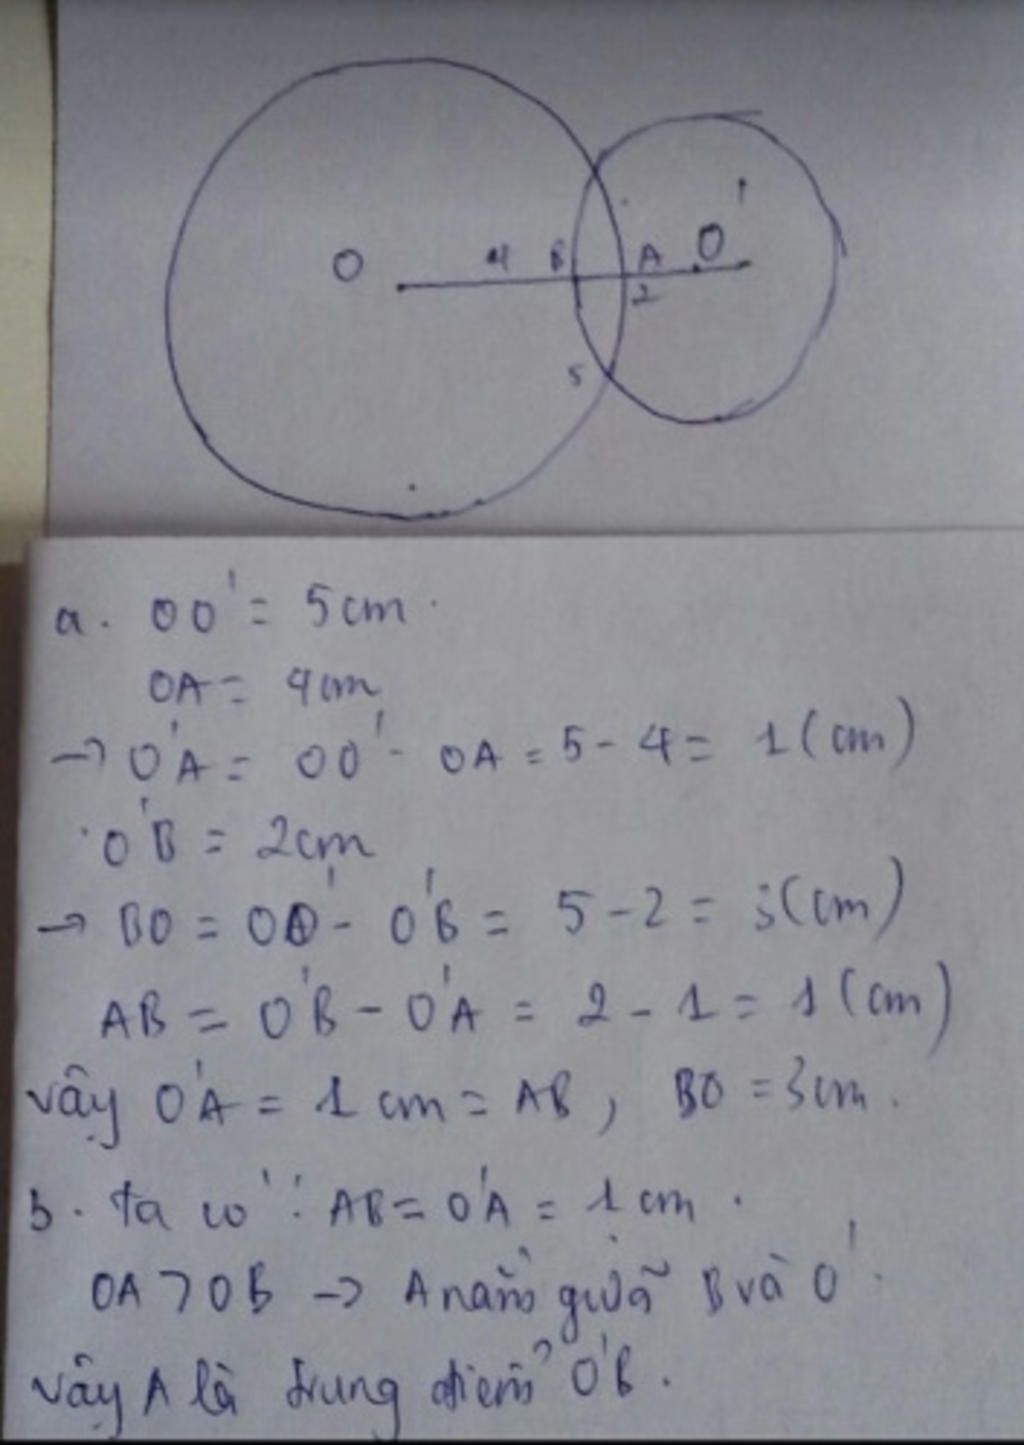 O 4 B A O'
2
5
a. OO' = 5cm.
OA = 4cm
→ O'A = OO' - OA = 5 - 4 = 1 (cm)
O'B = 2cm
→ BO = OO' - O'B = 5 - 2 = 3 (cm)
AB = O'B - O'A = 2 - 1 = 1 (cm)
vậy O'A = 1 cm = AB, BO = 3cm.
b. ta có: AB = O'A = 1 cm.
OA > OB → A nằm giữa B và O'.
vậy A là trung điểm O'B.